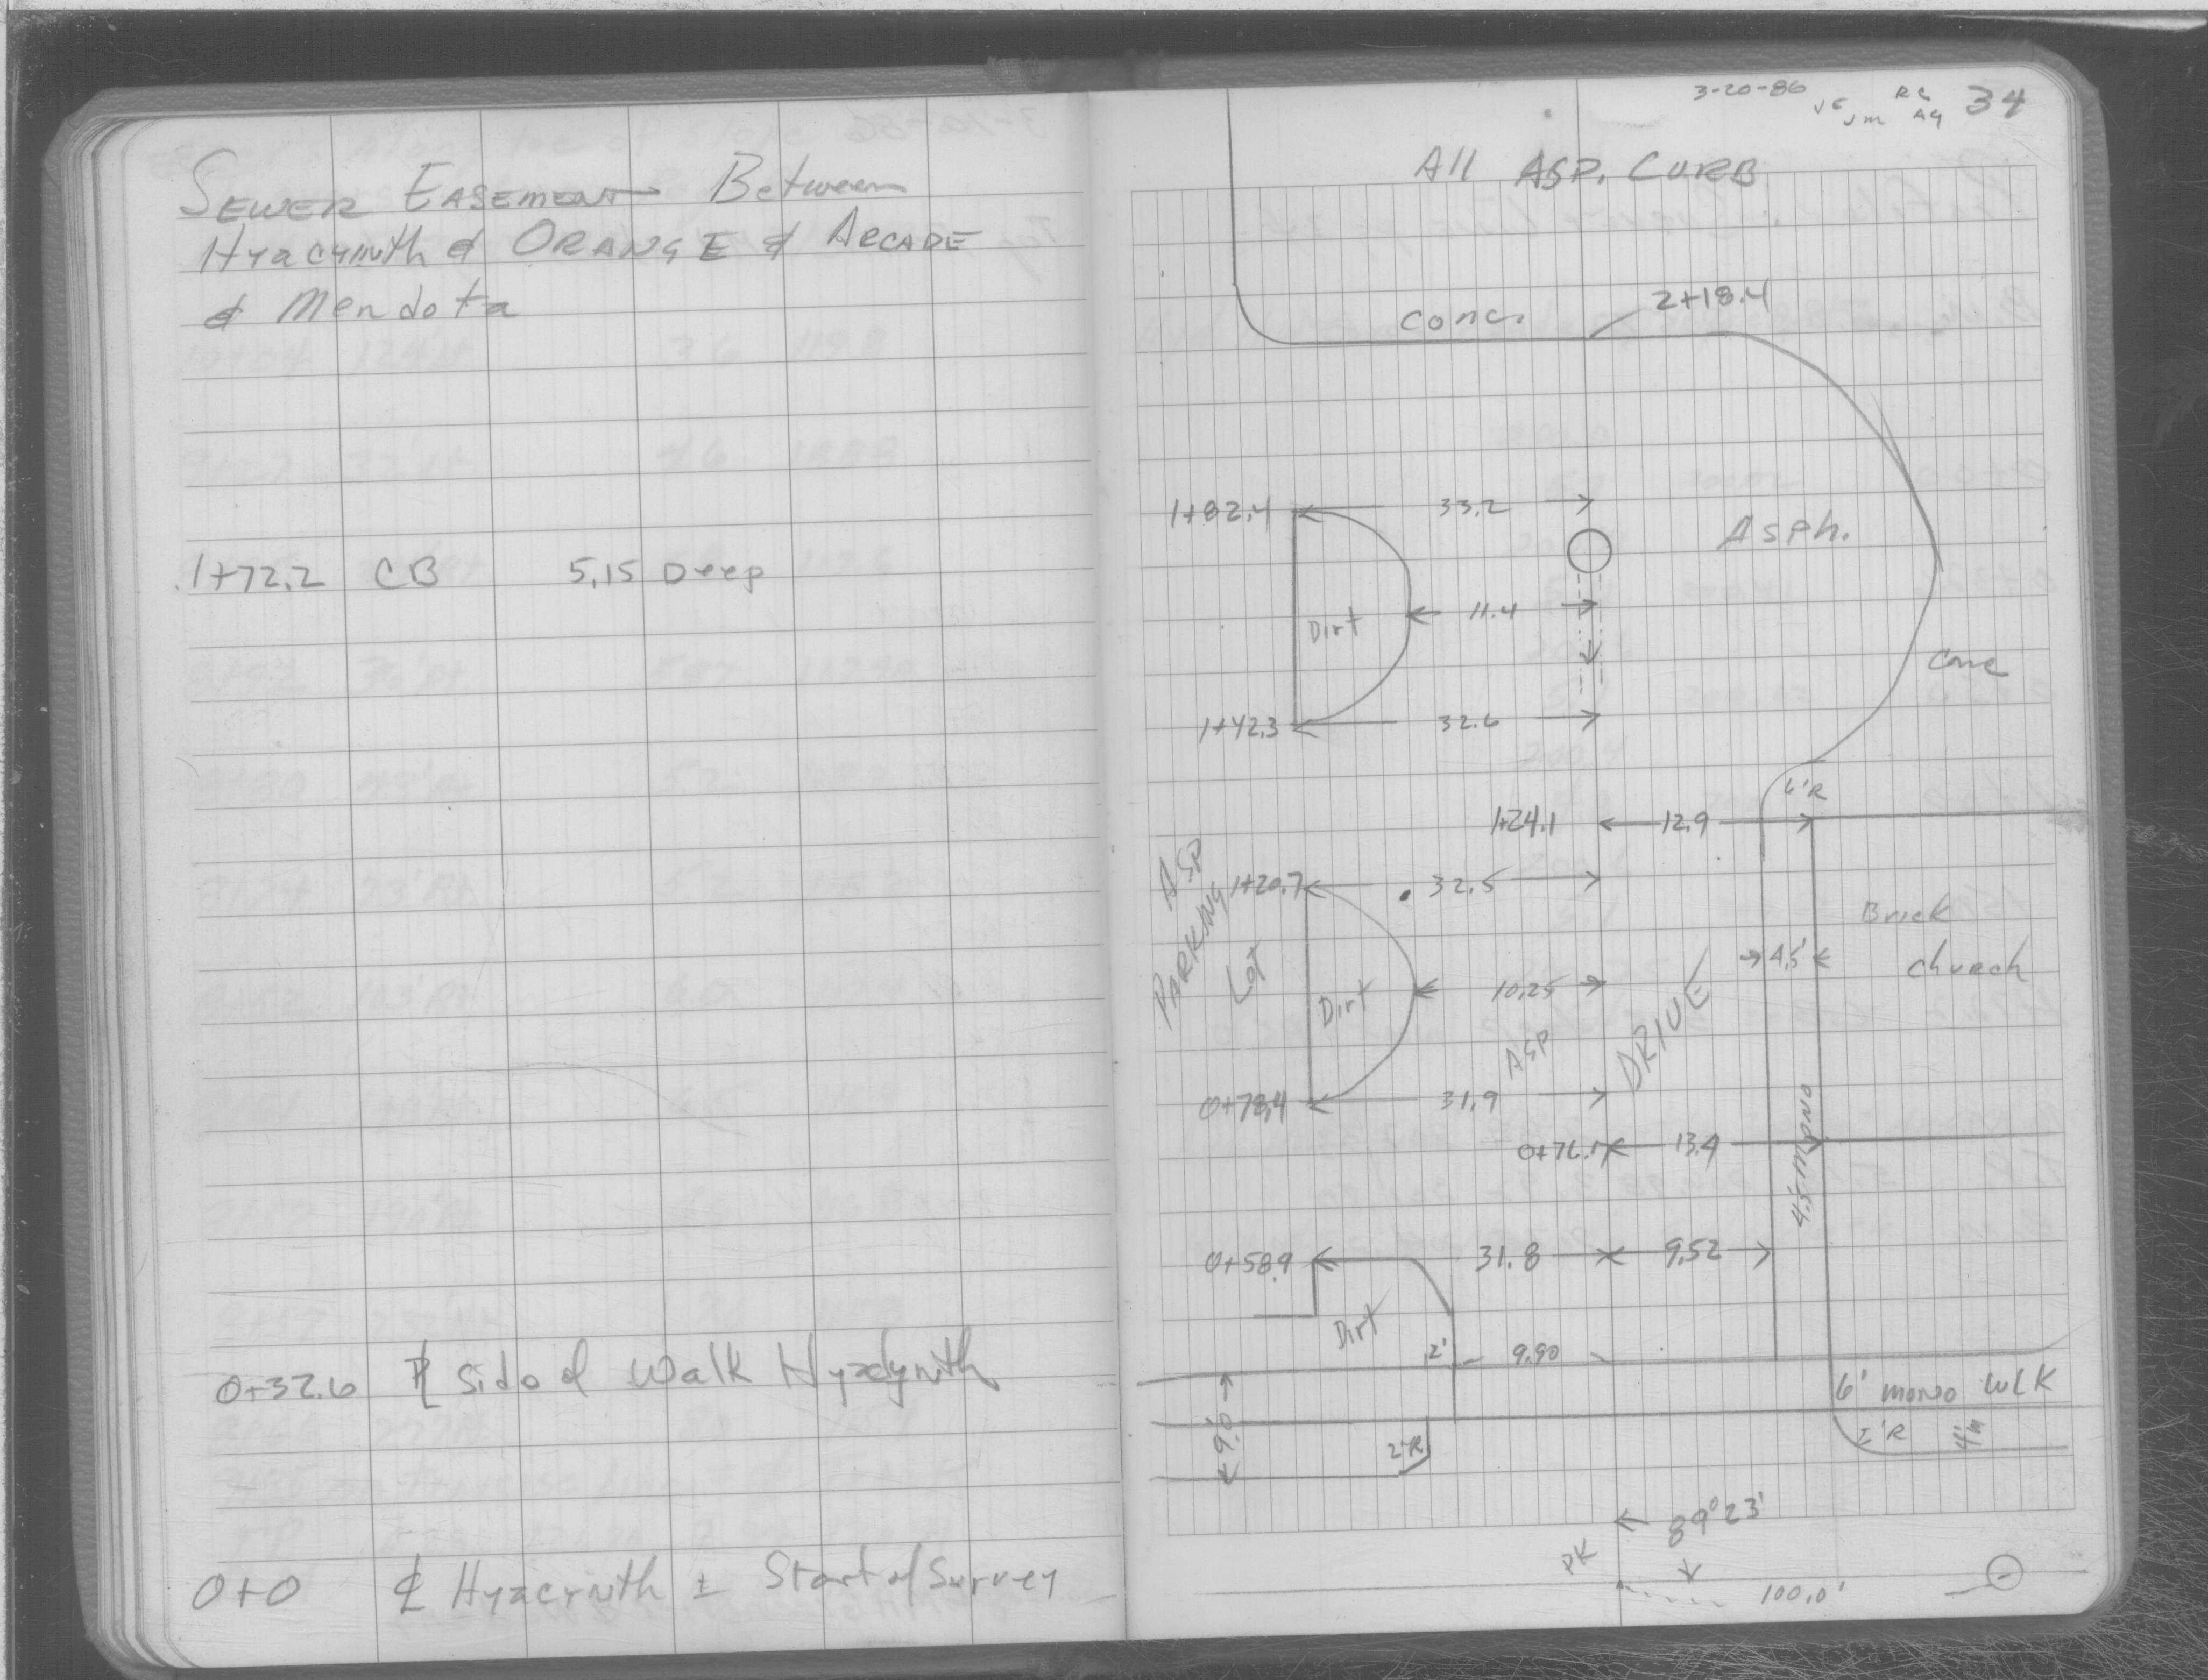 SEWER EASEMENT Between
Hyacynth & ORANGE & ARCADE
& Mendota
1+72.2 CB 5.15 Deep
0+32.6 ⅊ side of Walk Hyacynth
0+0 ℄ Hyacynth ± Start of Survey
3-20-86
JE RG
Jm AG
34
All ASP. CURB
2+18.4
Conc.
1+82.4 33.2
Asph.
Dirt 11.4
Conc
1+42.3 32.6
6'R
1+24.1 12.9
ASP
PARKING
Lot
1+20.7 32.5
Brick
Church
4.5'
Dirt 10.25
ASP
DRIVE
0+78.4 31.9
0+76.1 13.4
4.5' MONO
0+58.9 31.8 9.52
Dirt
2' 9.90
6' mono WLK
9.0'
2'R
2'R 4"
89°23'
PK
100.0'